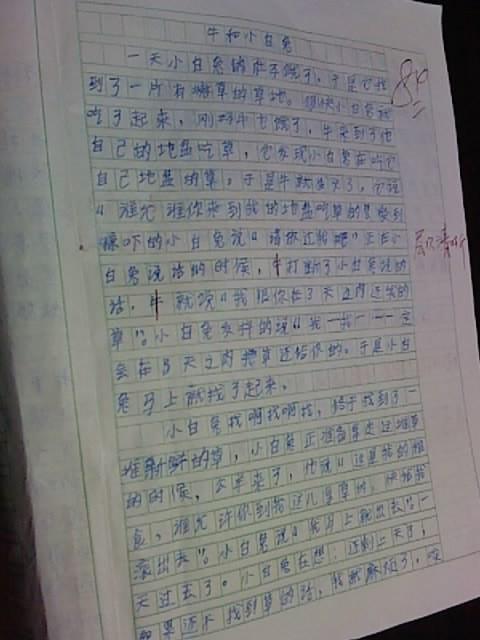 牛和小白兔
一天小白兔的肚子饿了，于是它找
到了一片有嫩草的草地。很快小白兔就
吃了起来，刚好牛也饿了，牛来到了他
自己的地盘吃草，它发现小白兔在吃它
自己地盘的草，于是牛就生气了，它说
“谁允谁你来到我的地盘吃草的
吓的小白兔说“请你还我吧”正在小
白兔说话的时候，牛打断了小白兔说的
话，牛就说“我限你在3天之内还我的
草”。小白兔发抖的说“我一我一一一定
会在3天之内把草还给你的。于是小白
兔马上就找了起来。
小白兔找啊找啊找，终于找到了一
堆新鲜的草，小白兔正准备拿走这堆草
的时候，羊来了，他说“这是我的粮
食，谁允许你到我这儿拿草的，快给我
滚出去”。小白兔说“我马上就出去”一
天过去了。小白兔在想：还剩上天了，
如果还不找到草的话，我就麻烦了，
层次清晰